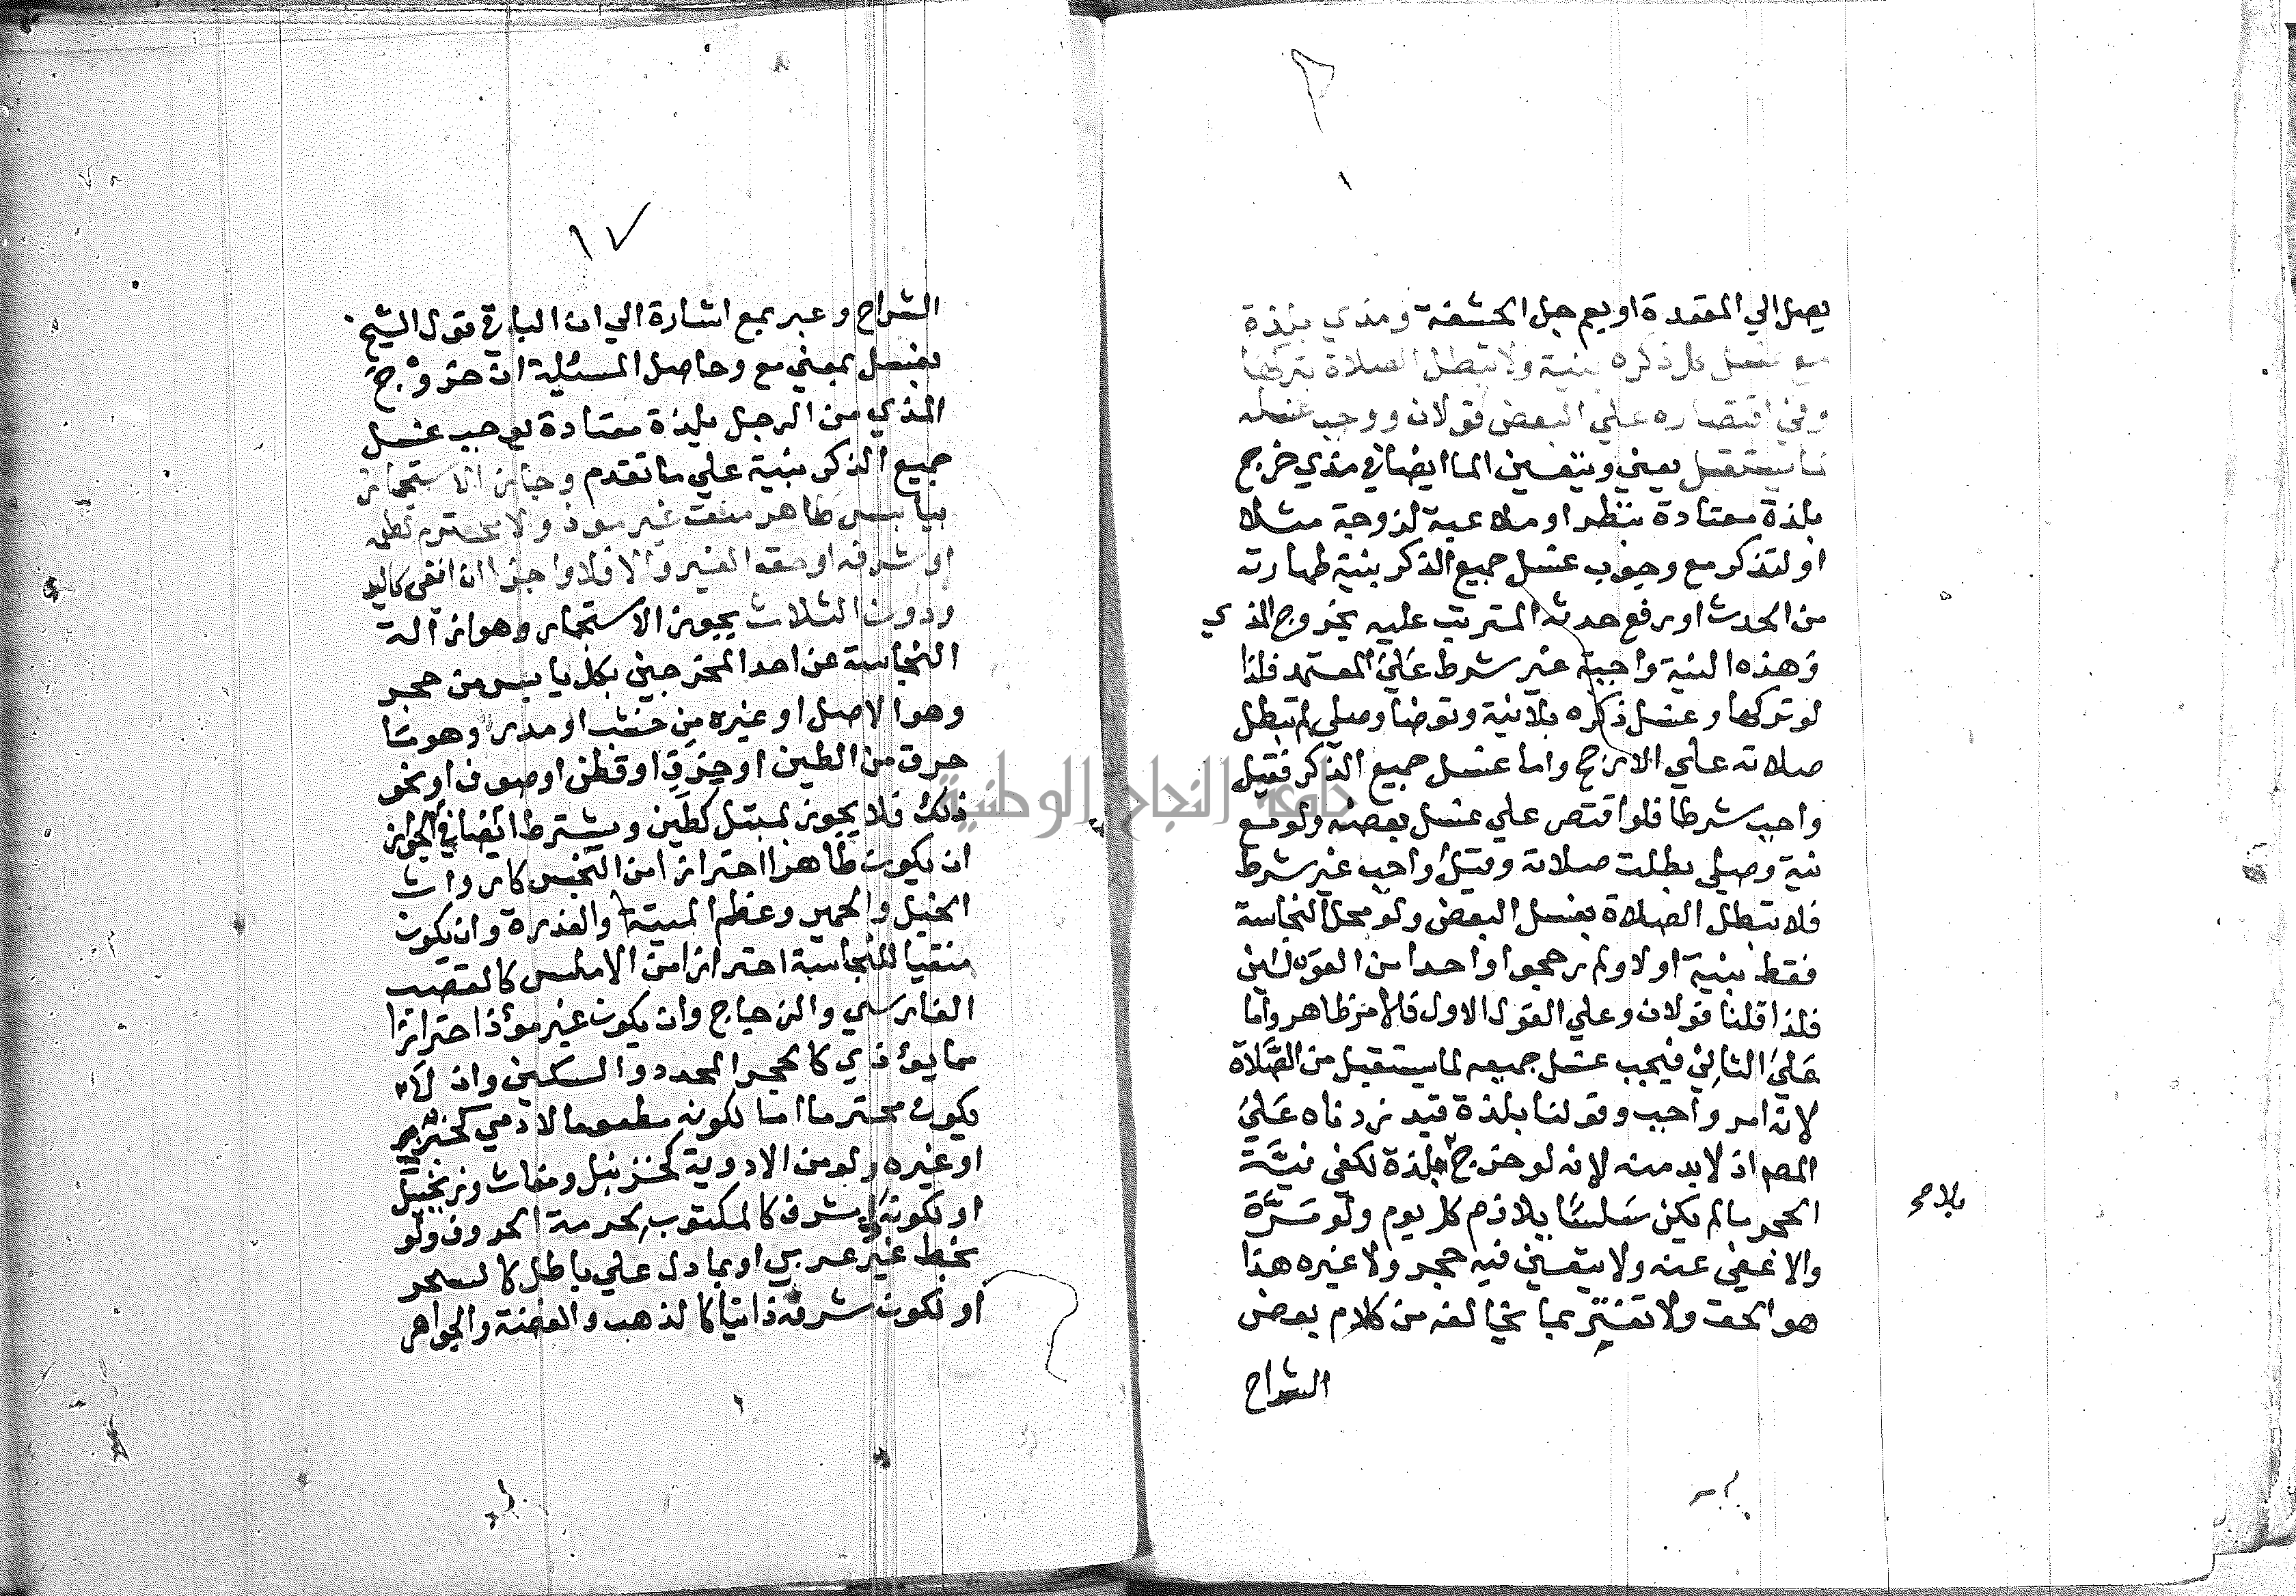 يصل الي المقعدة او يعم جل الحشفة ومذي بلذة
مع غسل كل ذكره بنية ولا تبطل الصلاة بتركها
وفي اقتصاره علي البعض قولان ووجب غسله
لما يستقبل يعني ويتعين الما ايضا في مذي خرج
بلذة معتادة بنظر او ملاعبة لزوجة مثلا
او لتذكر مع وجوب غسل جميع الذكر بنية طهارته
من الحدث او رفع حدثه المترتب عليه بخروج المذي
وهذه النية واجبة غير شرط علي المعتمد فلذا
لو تركها وغسل ذكره بلا نية وتوضا وصلي لم تبطل
صلاته علي الارجح واما غسل جميع الذكر فقيل
واجب شرطا فلو اقتصر علي غسل بعضه ولو مع
نية وصلي بطلت صلاته وقيل واجب غير شرط
فلا تبطل الصلاة بغسل البعض ولو محل النجاسة
فقط بنية او لا ولم يرجحوا واحدا من القولين
فلذا قلنا قولان وعلي القول الاول فالامر ظاهر واما
علي الثاني فيجب غسل جميعه لما يستقبل من الصلاة
لانه امر واجب وقولنا بلذة قيد زدناه علي
المص اذ لا بد منه لانه لو خرج بلا لذة تكفي فيه
الحجر ما لم يكن سلسا يلازم كل يوم ولو مرة
والا عفي عنه ولا يتعين فيه حجر ولا غيره هذا
هو الحق ولا تغتر بما يخالفه من كلام بعض
الشراح
بلا صح
١٧
الشراح وعبر بمع اشارة الي ان الباء في قول الشيخ
بغسل بمعني مع وحاصل المسئلة ان خروج
المذي من الرجل بلذة معتادة يوجب غسل
جميع الذكر بنية علي ما تقدم وجاز الاستجمار
بيابس طاهر منق غير موذ ولا محترم لطعمه
او شرفه او حق الغير والا فلا واجزا ان انقي كاليد
ودون الثلاث يجوز الاستجمار وهو ازالة
النجاسة عن احد المخرجين بكل يابس من حجر
وهو الاصل او غيره من خشب او مدر وهو ما
حرق من الطين او خرق او قطن او صوف او نحو
ذلك فلا يجوز بمبتل كطين ويشترط ايضا في الجواز
ان يكون طاهرا احترازا من النجس كارواث
الخيل والحمير وعظم الميتة والعذرة وان يكون
منقيا للنجاسة احترازا من الاملس كالقصب
الفارسي والزجاج وان يكون غير موذ احترازا
مما يوذي كالحجر المحدد والسكين وان لا
يكون محترما اما لكونه مطعوما لادمي كخبز
او غيره ولو من الادوية كحزنبل ومغاث وزنجبيل
او لكونه شرف كالمكتوب لحرمة الحروف ولو
بخط غير عربي او بما دل علي باطل كالسحر
او لكون شرفه ذاتيا كالذهب والفضة والجواهر
جامعة النجاح الوطنية